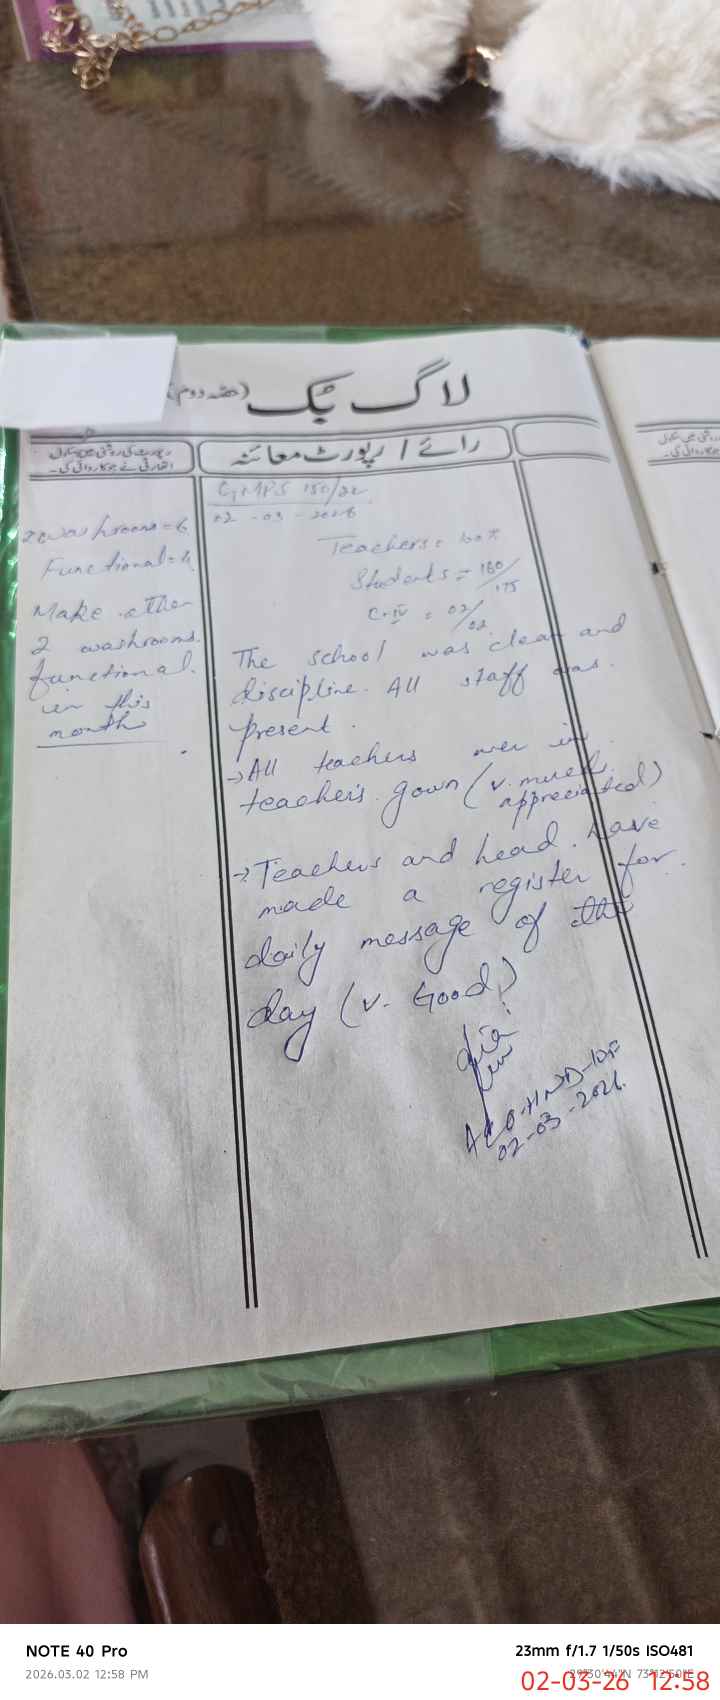 لاگ بک (حصہ دوم)
رائے / رپورٹ معائنہ
رپورٹ کی روشنی میں سکول
اتھارٹی نے جو کاروائی کی۔
GMPS 150/
02-03-2026
Teachers =
Students = 160/175
C-IV = 02/02
The school was clean and
discipline. All staff was
present.
→ All teachers wer in
teacher's gown (v. much
appreciated)
→ Teachers and head have
made a register for
daily message of the
day (v. Good)
02-03-2026
washrooms = 6
Functional = 4
Make other
2 washrooms
functional
in this
month
NOTE 40 Pro
2026.03.02 12:58 PM
23mm f/1.7 1/50s ISO481
02-03-26 12:58